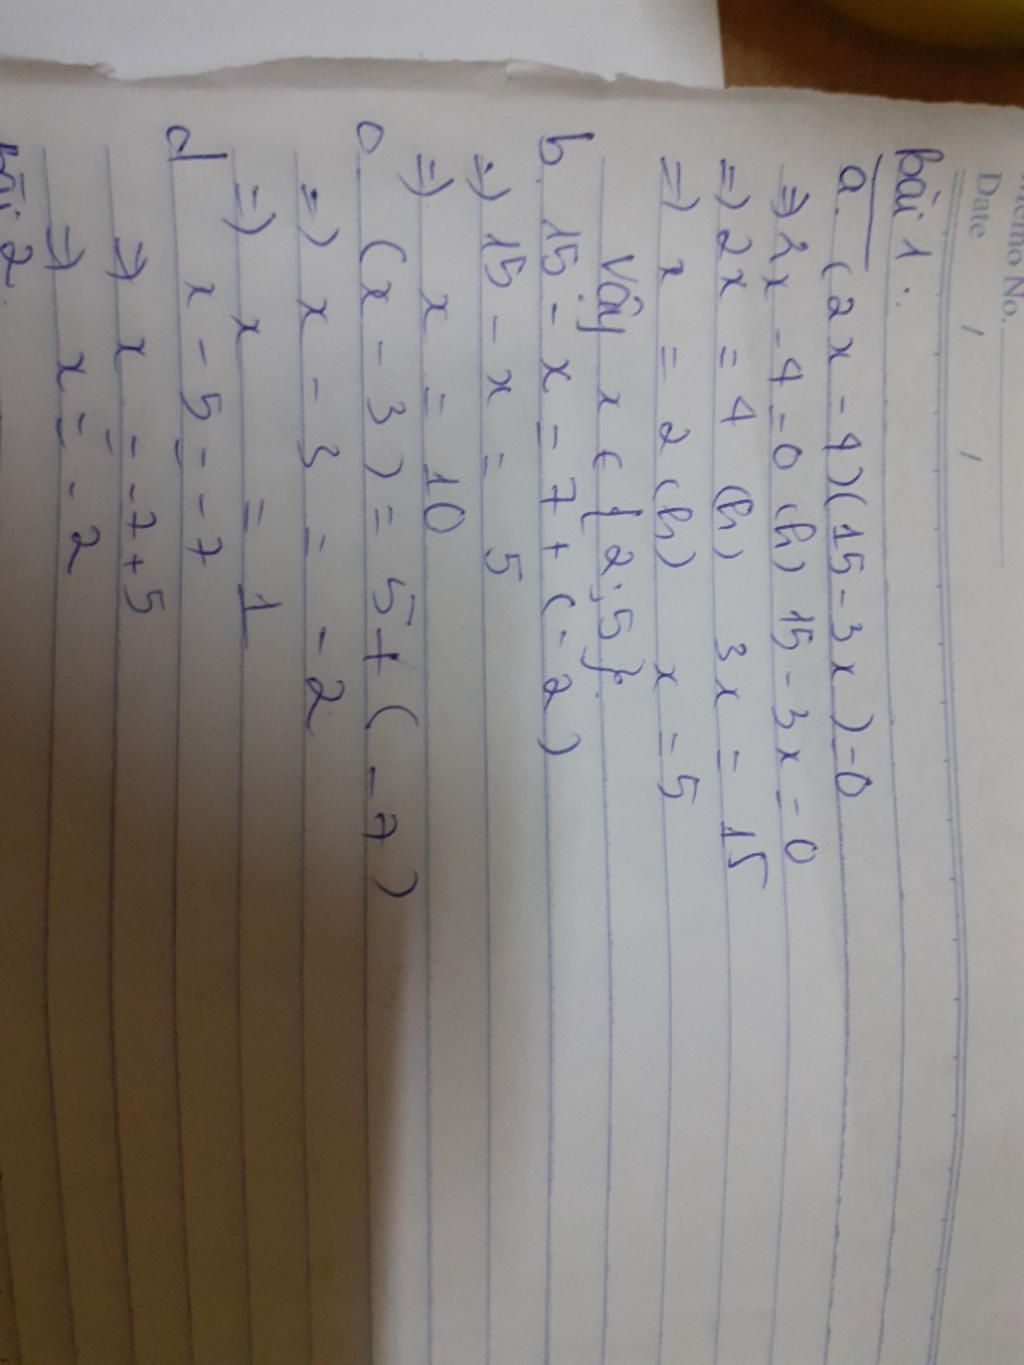 Memo No.
Date / /
Bài 1:
a. (2x - 4)(15 - 3x) = 0
=> 2x - 4 = 0 (h) 15 - 3x = 0
=> 2x = 4 (h) 3x = 15
=> x = 2 (h) x = 5
Vậy x ∈ {2; 5}.
b. 15 - x = 7 + (-2)
=> 15 - x = 5
=> x = 10
c. (x - 3) = 5 + (-7)
=> x - 3 = -2
=> x = 1
d x - 5 = -7
=> x = -7 + 5
=> x = -2
Bài 2.